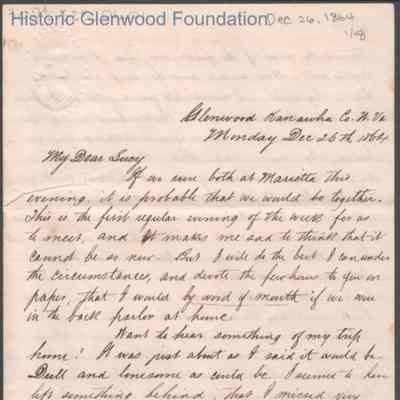 Historic Glenwood Foundation
Dec 26, 1864
1/48
Glenwood Kanawha Co. W. Va
Monday Dec 26th 1864
My Dear Lucy
If we were both at Marietta this
evening, it is probable that we would be together.
This is the first regular evening of the week for us
to meet, and it makes me sad to think that it
cannot be so now. But I will do the best I can under
the circumstances, and devote the few hours to you on
paper, that I would by word of mouth if we were
in the back parlor at home.
Want to hear something of my trip
home! It was just about as I said it would be
Dull and lonesome as could be. I seemed to have
left something behind, that I missed very